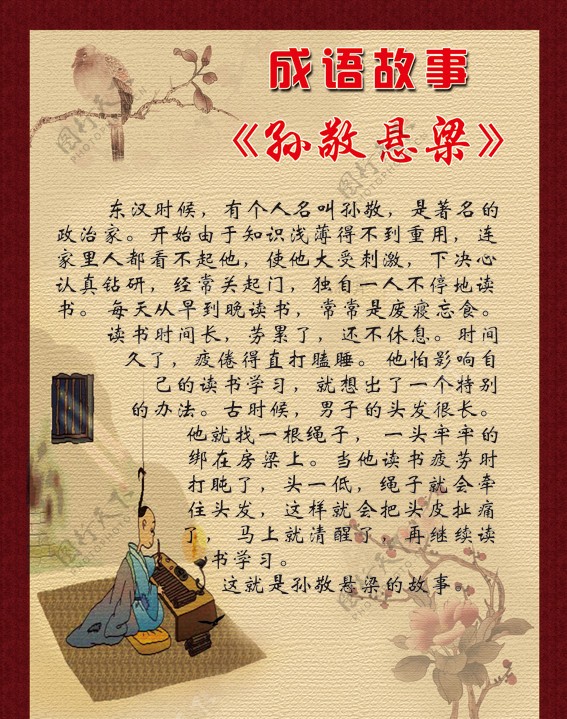 成语故事
《孙敬悬梁》
东汉时候，有个人名叫孙敬，是著名的
政治家。开始由于知识浅薄得不到重用，连
家里人都看不起他，使他大受刺激，下决心
认真钻研，经常关起门，独自一人不停地读
书。每天从早到晚读书，常常是废寝忘食。
读书时间长，劳累了，还不休息。时间
久了，疲倦得直打瞌睡。他怕影响自
己的读书学习，就想出了一个特别
的办法。古时候，男子的头发很长。
他就找一根绳子，一头牢牢的
绑在房梁上。当他读书疲劳时
打盹了，头一低，绳子就会牵
住头发，这样就会把头皮扯痛
了，马上就清醒了，再继续读
书学习。
这就是孙敬悬梁的故事。